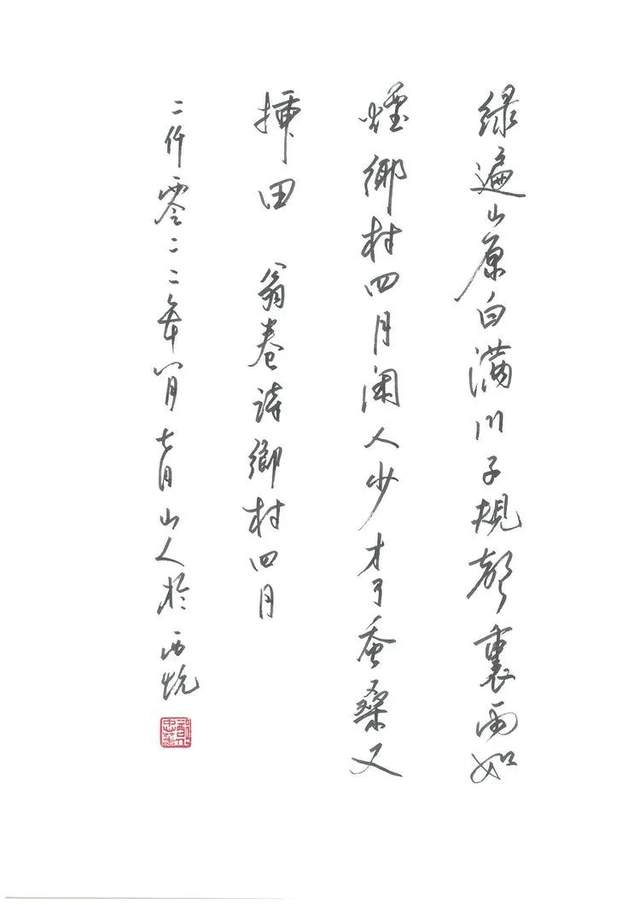 绿遍山原白满川子规声裏雨如
煙鄉村四月闲人少才了蚕桑又
插田 翁卷诗鄉村四月
二仟零二二年八月七月山人於西